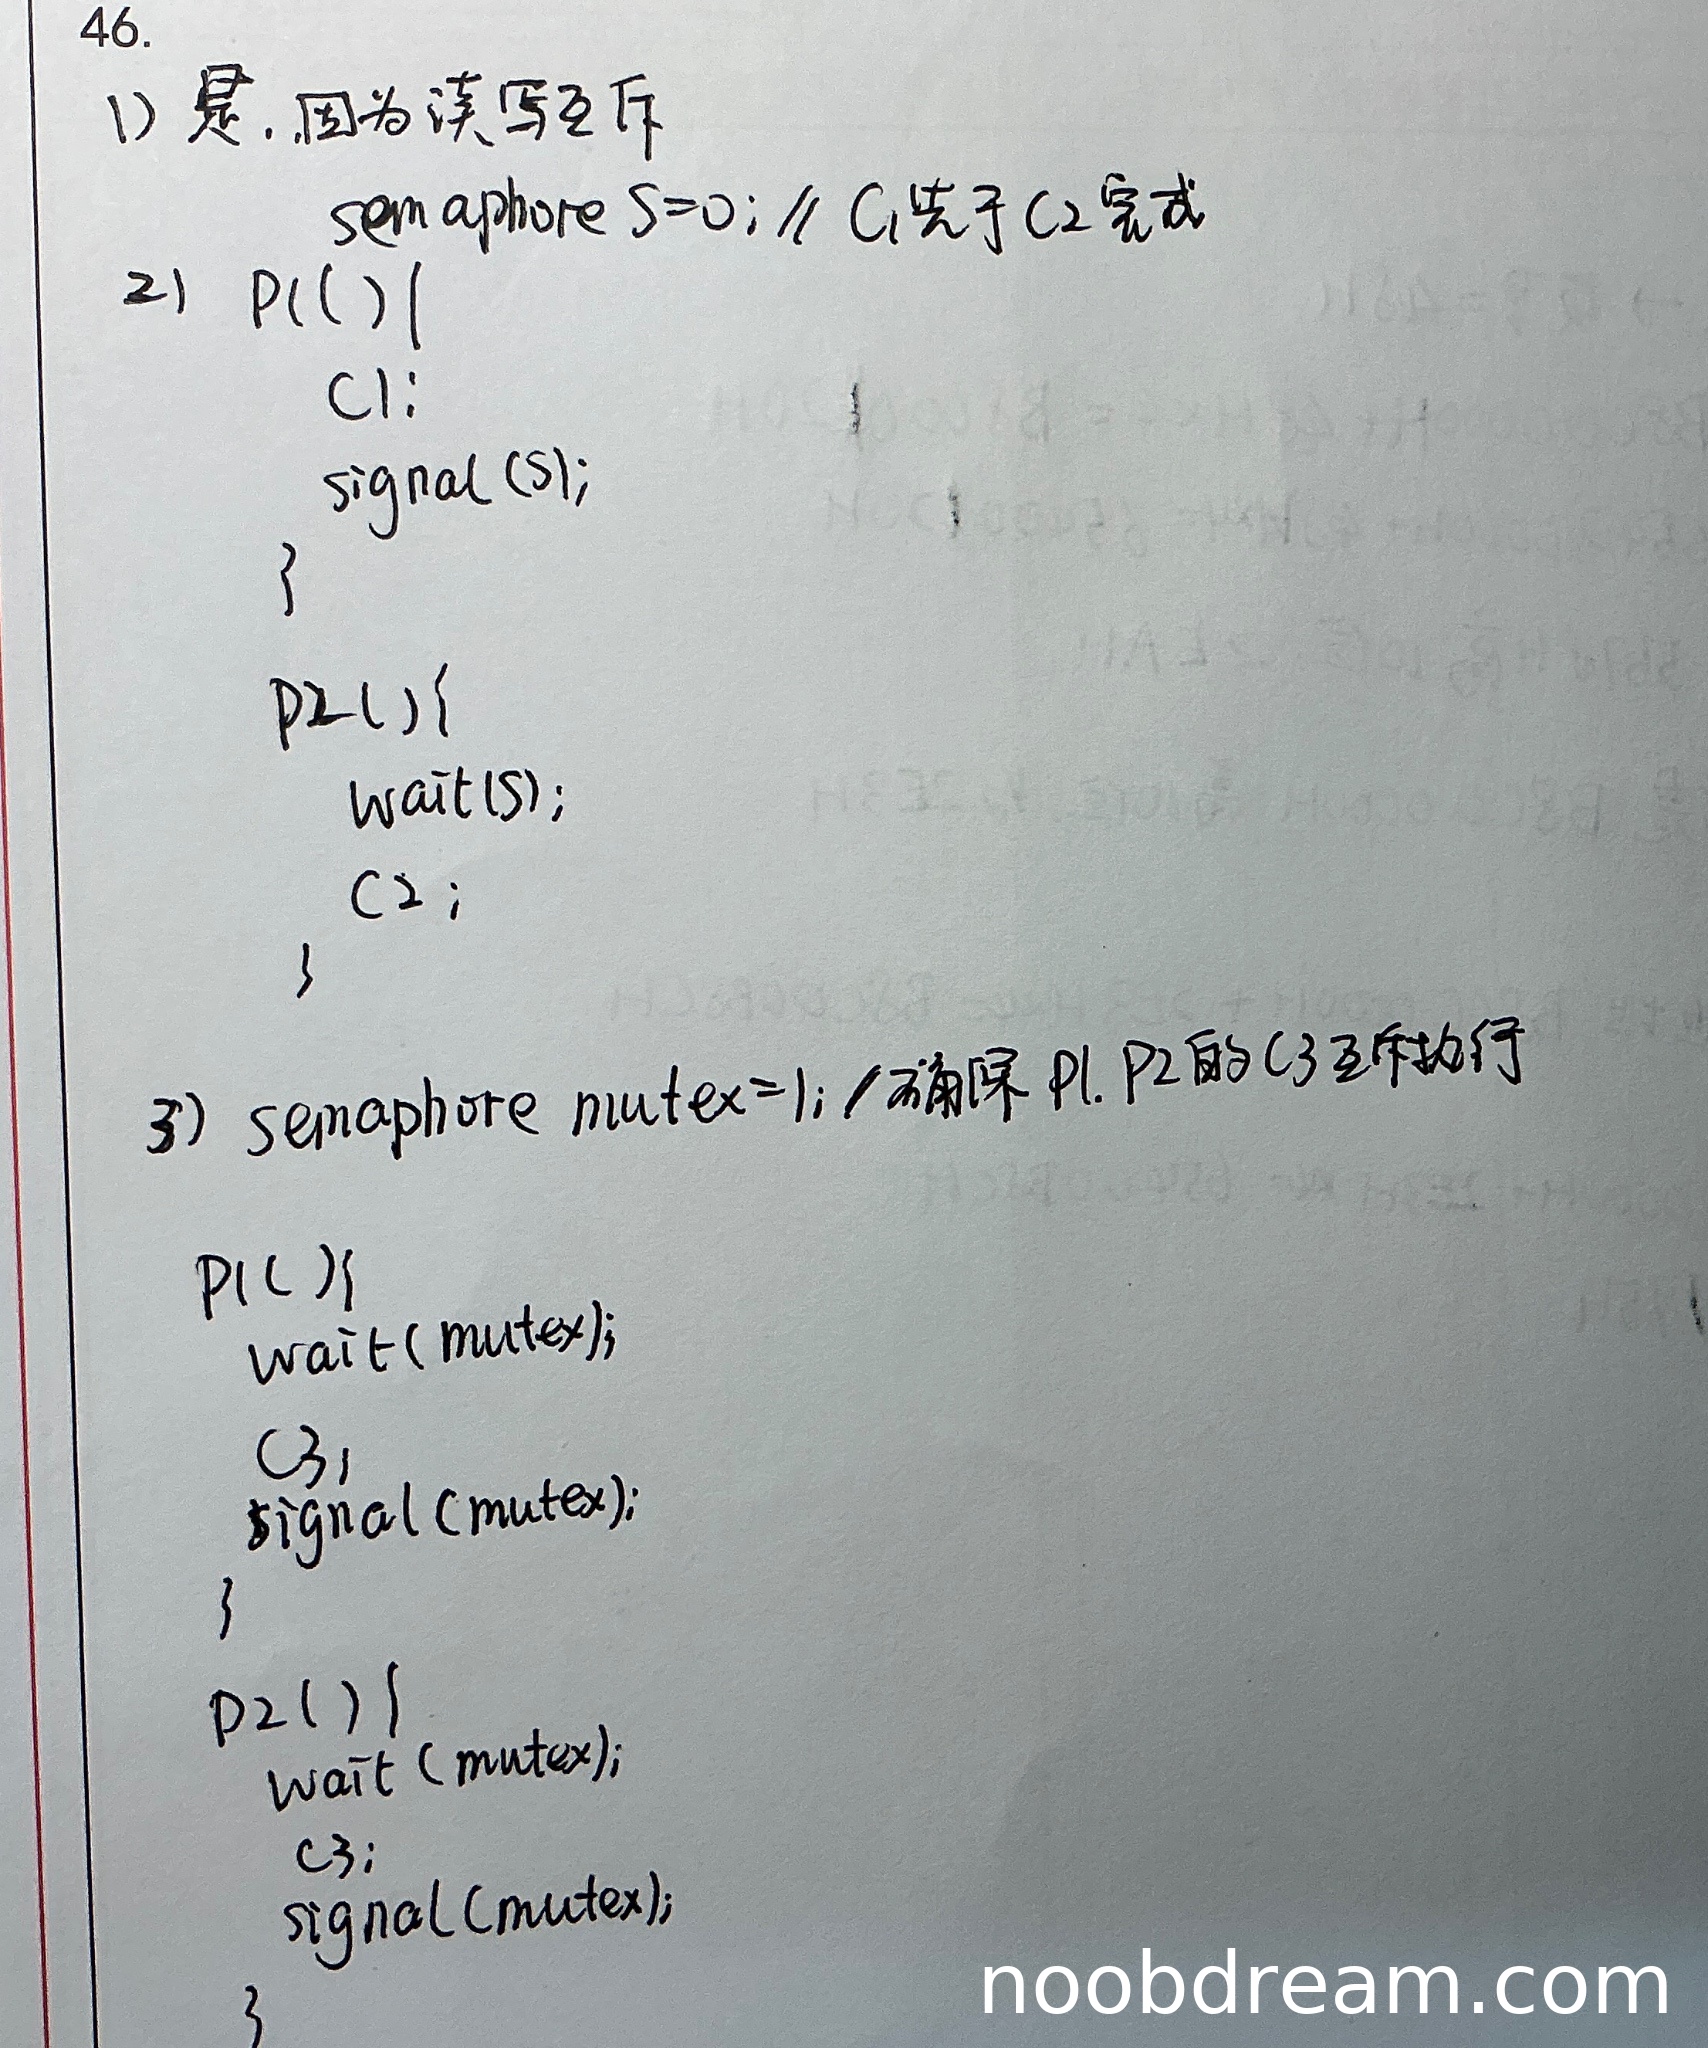 46.
1) 是. 因为读写互斥
semaphore S=0; // C1先于C2完成
2) P1(){
C1;
signal(S);
}
P2(){
wait(S);
C2;
}
3) semaphore mutex=1; // 确保 P1. P2的C3互斥执行
P1(){
wait(mutex);
C3;
signal(mutex);
}
P2(){
wait(mutex);
C3;
signal(mutex);
}
noobdream.com